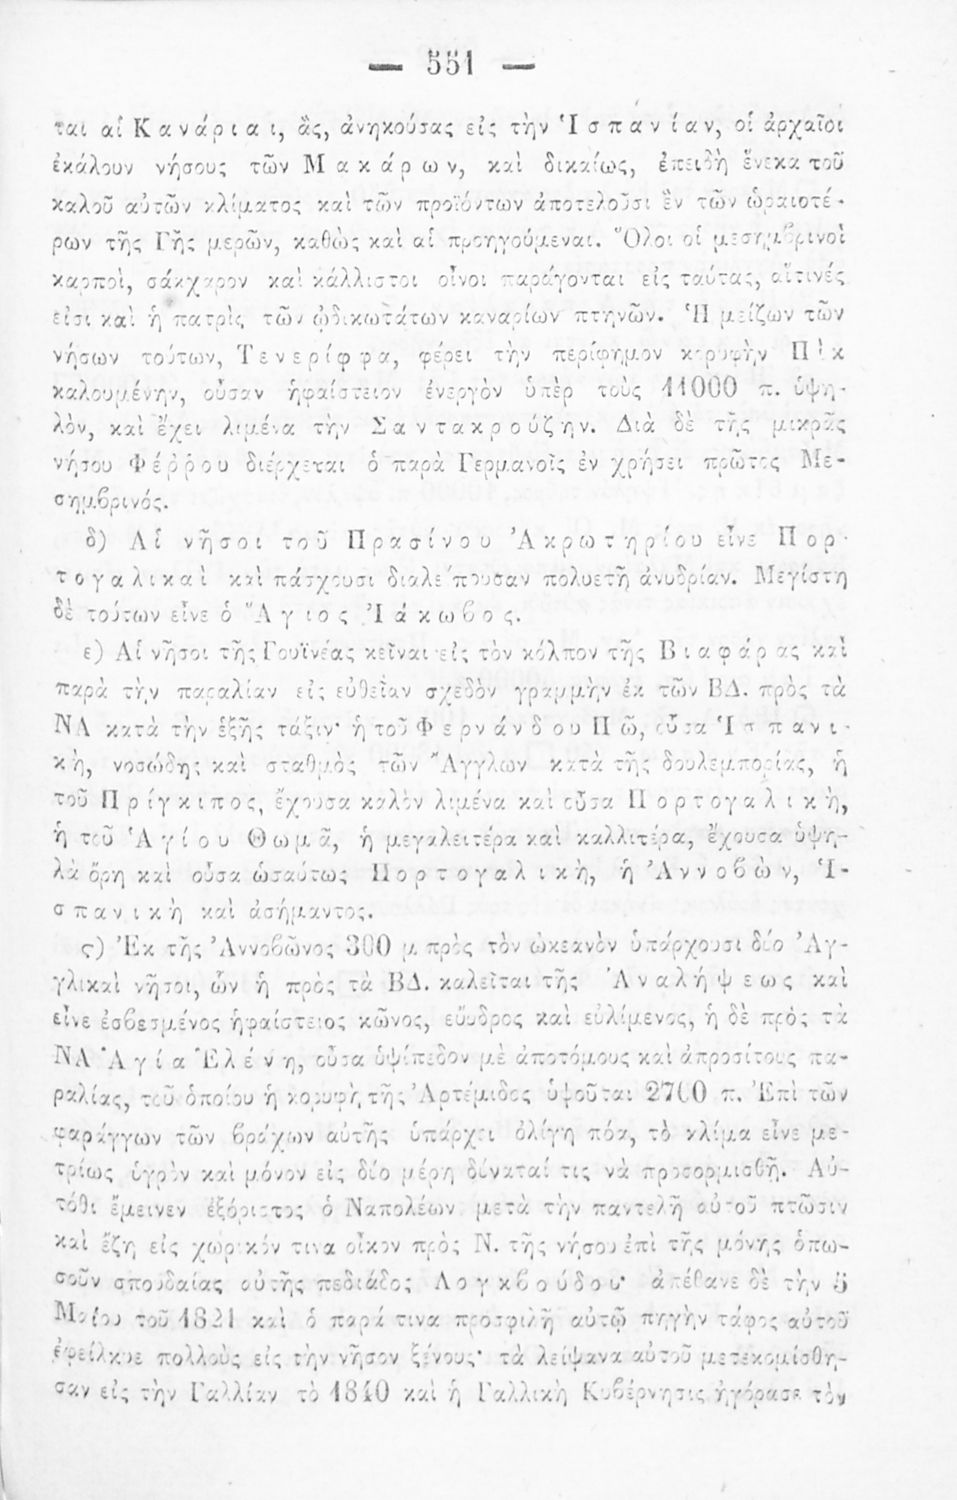 — 551 —
ται αἱ Κ α ν ά ρ ι α ι, ἃς, ἀνηκούσας εἰς τὴν Ἱ σ π α ν ί α ν, οἱ ἀρχαῖοι
ἐκάλουν νήσους τῶν Μ α κ ά ρ ω ν, καὶ δικαίως, ἐπειδὴ ἕνεκα τοῦ
καλοῦ αὐτῶν κλίματος καὶ τῶν προϊόντων ἀποτελοῦσι ἓν τῶν ὡραιοτέ-
ρων τῆς Γῆς μερῶν, καθὼς καὶ αἱ προηγούμεναι. Ὅλοι οἱ μεσημβρινοὶ
καρποὶ, σάκχαρον καὶ κάλλιστοι οἶνοι παράγονται εἰς ταύτας, αἵτινές
εἰσι καὶ ἡ πατρὶς τῶν ᾠδικωτάτων καναρίων πτηνῶν. Ἡ μείζων τῶν
νήσων τούτων, Τ ε ν ε ρ ί φ φ α, φέρει τὴν περίφημον κορυφὴν Π ὶ κ
καλουμένην, οὖσαν ἡφαίστειον ἐνεργὸν ὑπὲρ τοὺς 11000 π. ὑψη-
λὸν, καὶ ἔχει λιμένα τὴν Σ α ν τ α κ ρ ο ύ ζ ην. Διὰ δὲ τῆς μικρᾶς
νήσου Φ έ ρ ρ ο υ διέρχεται ὁ παρὰ Γερμανοῖς ἐν χρήσει πρῶτος Με-
σημβρινός.
δ) Αἱ νῆσοι τοῦ Π ρ α σ ί ν ο υ Ἀ κ ρ ω τ η ρ ί ο υ εἶνε Π ο ρ -
τ ο γ α λ ι κ α ὶ καὶ πάσχουσι διαλείπουσαν πολυετῆ ἀνυδρίαν. Μεγίστη
δὲ τούτων εἶνε ὁ Ἅ γ ι ο ς Ἰ ά κ ω β ο ς.
ε) Αἱ νῆσοι τῆς Γουϊνέας κεῖναι εἰς τὸν κόλπον τῆς Β ι α φ ά ρ ας καὶ
παρὰ τὴν παραλίαν εἰς εὐθεῖαν σχεδὸν γραμμὴν ἐκ τῶν ΒΔ. πρὸς τὰ
ΝΑ κατὰ τὴν ἑξῆς τάξιν· ἡ τοῦ Φ ε ρ ν ά ν δ ο υ Π ῶ, οὖσα Ἱ σ π α ν ι -
κ ὴ, νοσώδης καὶ σταθμὸς τῶν Ἄγγλων κατὰ τῆς δουλεμπορίας, ἡ
τοῦ Π ρ ί γ κ ι π ο ς, ἔχουσα καλὸν λιμένα καὶ οὖσα Π ο ρ τ ο γ α λ ι κ ὴ,
ἡ τοῦ Ἁ γ ί ο υ Θ ω μ ᾶ, ἡ μεγαλειτέρα καὶ καλλιτέρα, ἔχουσα ὑψη-
λὰ ὄρη καὶ οὖσα ὡσαύτως Π ο ρ τ ο γ α λ ι κ ὴ, ἡ Ἀ ν ν ο β ὼ ν, Ἱ-
σ π α ν ι κ ὴ καὶ ἀσήμαντος.
ς) Ἐκ τῆς Ἀννοβῶνος 300 μ πρὸς τὸν ὠκεανὸν ὑπάρχουσι δύο Ἀγ-
γλικαὶ νῆσοι, ὧν ἡ πρὸς τὰ ΒΔ. καλεῖται τῆς Ἀ ν α λ ή ψ ε ως καὶ
εἶνε ἐσβεσμένος ἡφαίστειος κῶνος, εὔυδρος καὶ εὐλίμενος, ἡ δὲ πρὸς τὰ
ΝΑ Ἁ γ ί α Ἑ λ έ ν η, οὖσα ὑψίπεδον μὲ ἀποτόμους καὶ ἀπροσίτους πα-
ραλίας, τοῦ ὁποίου ἡ κορυφὴ τῆς Ἀρτέμιδος ὑψοῦται 2700 π. Ἐπὶ τῶν
φαράγγων τῶν βράχων αὐτῆς ὑπάρχει ὀλίγη πόα, τὸ κλίμα εἶνε με-
τρίως ὑγρὸν καὶ μόνον εἰς δύο μέρη δύναταί τις νὰ προσορμισθῇ. Αὐ-
τόθι ἔμεινεν ἐξόριστος ὁ Ναπολέων μετὰ τὴν παντελῆ αὐτοῦ πτῶσιν
καὶ ἔζη εἰς χωρικόν τινα οἶκον πρὸς Ν. τῆς νήσου ἐπὶ τῆς μόνης ὁπω-
σοῦν σπουδαίας αὐτῆς πεδιάδος Λ ο γ κ β ο ύ δ ο υ· ἀπέθανε δὲ τὴν 5
Μαΐου τοῦ 1821 καὶ ὁ παρά τινα προσφιλῆ αὐτῷ πηγὴν τάφος αὐτοῦ
ἐφείλκυε πολλοὺς εἰς τὴν νῆσον ξένους· τὰ λείψανα αὐτοῦ μετεκομίσθη-
σαν εἰς τὴν Γαλλίαν τὸ 1840 καὶ ἡ Γαλλικὴ Κυβέρνησις ἠγόρασε τὸν